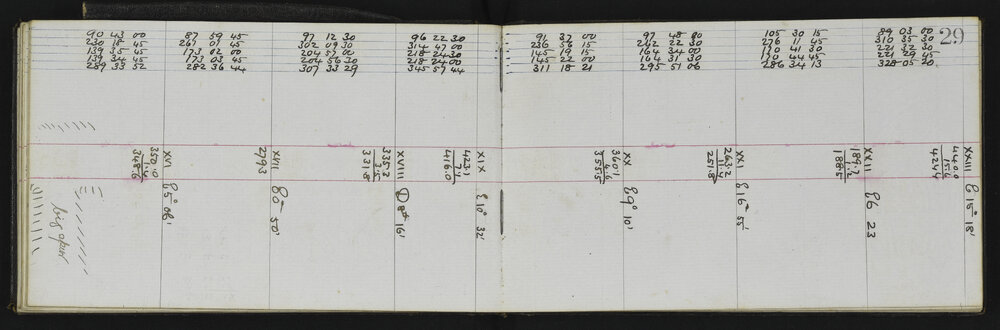 90 43 00 87 59 45 97 12 30 96 22 30 91 37 00 97 48 00 105 30 15 89 03 00
230 18 45 261 01 45 302 09 30 314 47 00 236 56 15 242 22 30 276 11 45 310 35 30
139 35 45 173 02 00 204 57 00 218 24 30 145 19 15 164 34 00 170 41 30 221 32 30
139 34 45 173 03 45 204 56 30 218 24 00 145 22 00 164 31 30 170 44 45 221 29 45
289 33 52 282 36 44 307 33 29 345 57 44 311 18 21 295 51 06 286 34 13 328 05 20
29
XVI
350.0
1.4
348.6
E 5° 06'
XVII
279.3
E 0° 50'
XVIII
335.2
3.5
331.8
D 8° 16'
XIX
423.1
7.1
416.0
E 10° 32'
XX
360.1
4.6
355.5
E 9° 10'
XXI
263.2
11.4
251.8
E 16° 55'
XXII
189.7
1.2
188.5
E 6 23
XXIII
440.0
15.6
424.4
E 15° 18'
big spur